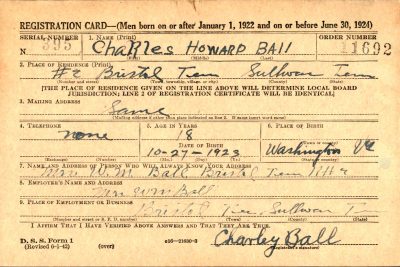 REGISTRATION CARD—(Men born on or after January 1, 1922 and on or before June 30, 1924)
SERIAL NUMBER 1. NAME (Print) ORDER NUMBER
N 395 Charles Howard Ball 11692
(First) (Middle) (Last)
2. PLACE OF RESIDENCE (Print)
#2 Bristol Tenn Sullivan Tenn
[THE PLACE OF RESIDENCE GIVEN ON THE LINE ABOVE WILL DETERMINE LOCAL BOARD
JURISDICTION; LINE 2 OF REGISTRATION CERTIFICATE WILL BE IDENTICAL]
3. MAILING ADDRESS
Same
[Mailing address if other than place indicated on line 2. If same insert word same]
4. TELEPHONE 5. AGE IN YEARS 6. PLACE OF BIRTH
none 18
DATE OF BIRTH Washington
10-27-1923
(Exchange) (Number) (Mo.) (Day) (Yr.) (State or country)
7. NAME AND ADDRESS OF PERSON WHO WILL ALWAYS KNOW YOUR ADDRESS
Mrs W.M. Ball Bristol Tenn #2
8. EMPLOYER'S NAME AND ADDRESS
Mrs WM Ball
9. PLACE OF EMPLOYMENT OR BUSINESS
Bristol Tenn, Sullivan
(Number and street or R. F. D. number) (Town) (County) (State)
I AFFIRM THAT I HAVE VERIFIED ABOVE ANSWERS AND THAT THEY ARE TRUE.
D. S. S. Form 1
(Revised 6-1-42) (over) c16-21630-2 Charley Ball